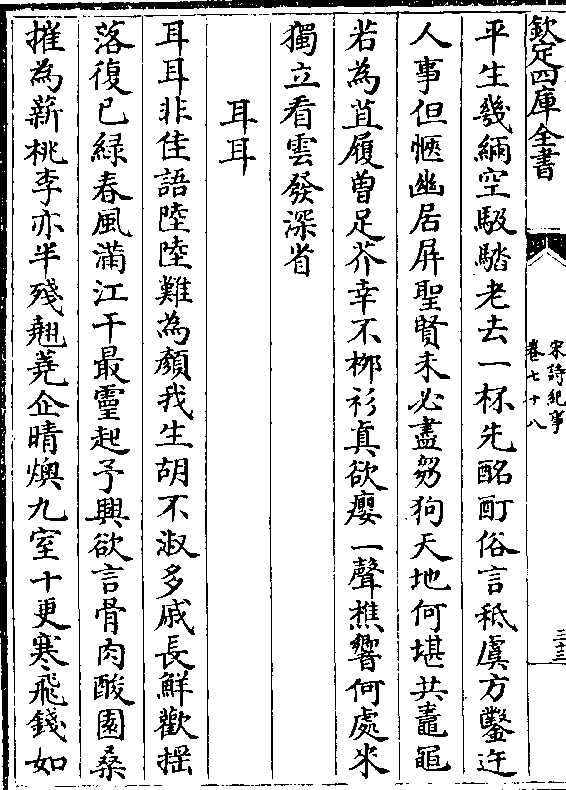 欽定四庫全書
宋詩紀事
卷七十八
三十三
平生幾緉空馺踏老去一杯先酩酊俗言秪虞方鑿迕
人事但愜幽居屏聖賢未必盡芻狗天地何堪共鼃黽
若為苴履曾足芥幸不柳衫真欲癭一聲樵響何處来
獨立看雲發深省
耳耳
耳耳非佳語陸陸難為顏我生胡不淑多戚長鮮歡揺
落復已緑春風滿江干最靈起予興欲言骨肉酸園桑
摧為薪桃李亦半殘翹蕘企晴燠九室十更寒飛錢如